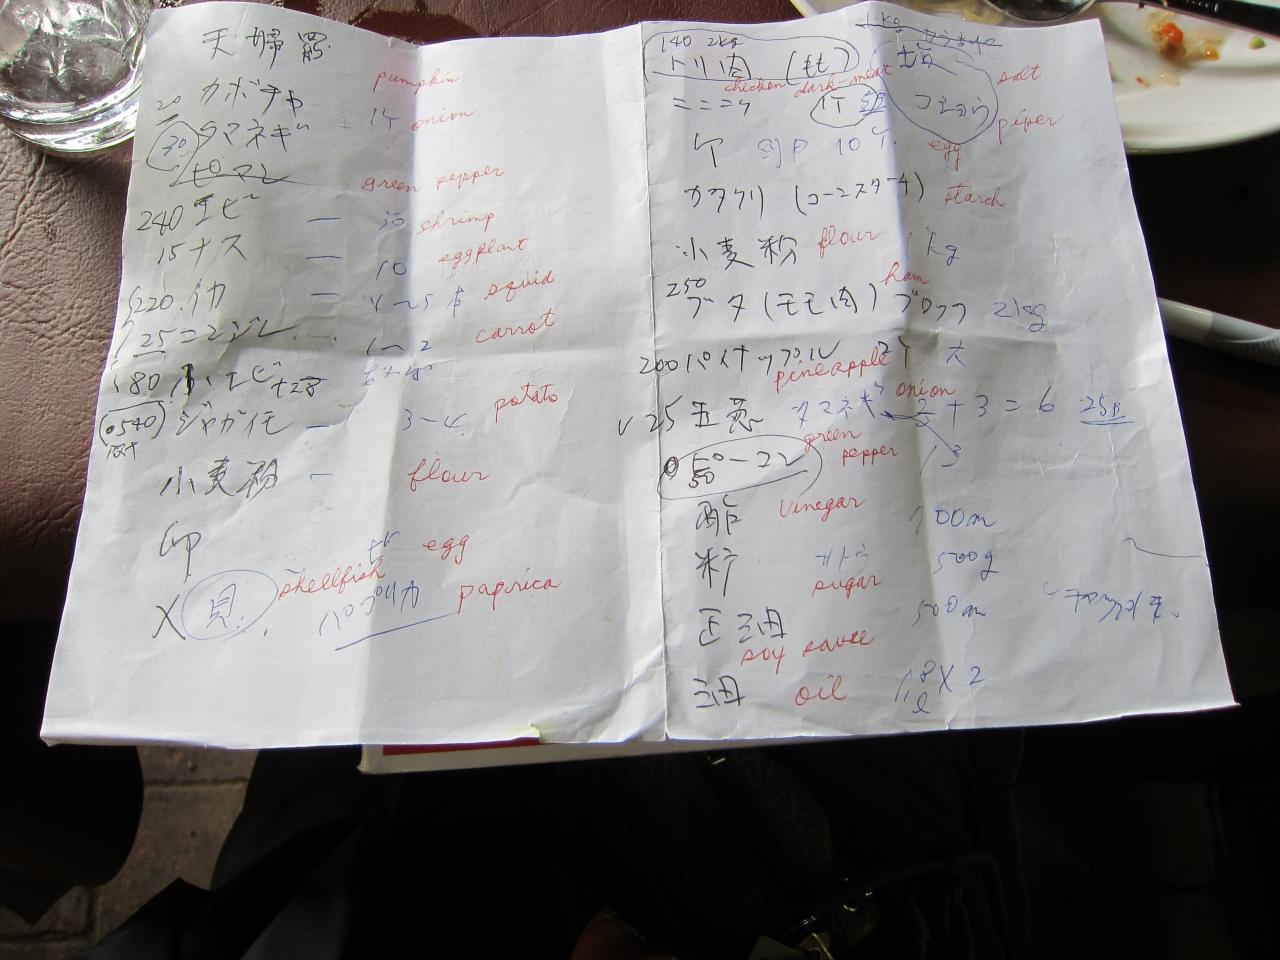 天婦羅
カボチャ pumpkin
20
30 タマネギ 1ケ onion
ピマン green pepper
240 エビ — 30 shrimp
15 ナス — 10 eggplant
220 イカ — 4~5 squid
25 ニンジン 1~2 carrot
180 小エビ
540 ジャガイモ — 3~4 potato
小麦粉 — flour
卵 egg
X 貝 shellfish パプリカ paprica
140 2kg 1kg
トリ肉 (モモ) 塩 salt
chicken dark-meat
ニンニク 1ケ コショウ piper
卵 10ケ egg
カタクリ (コーンスターチ) starch
小麦粉 flour 1kg
250 ham
ブタ (モモ肉) ブロック 2kg
200 パイナップル 大
pineapple
25 玉葱 タマネギ onion + 3 = 6 25
50 ピーマン green pepper 3
酢 vinegar
サトウ 500g
sugar
正油 500m
soy sauce
油 oil 1.8l X 2